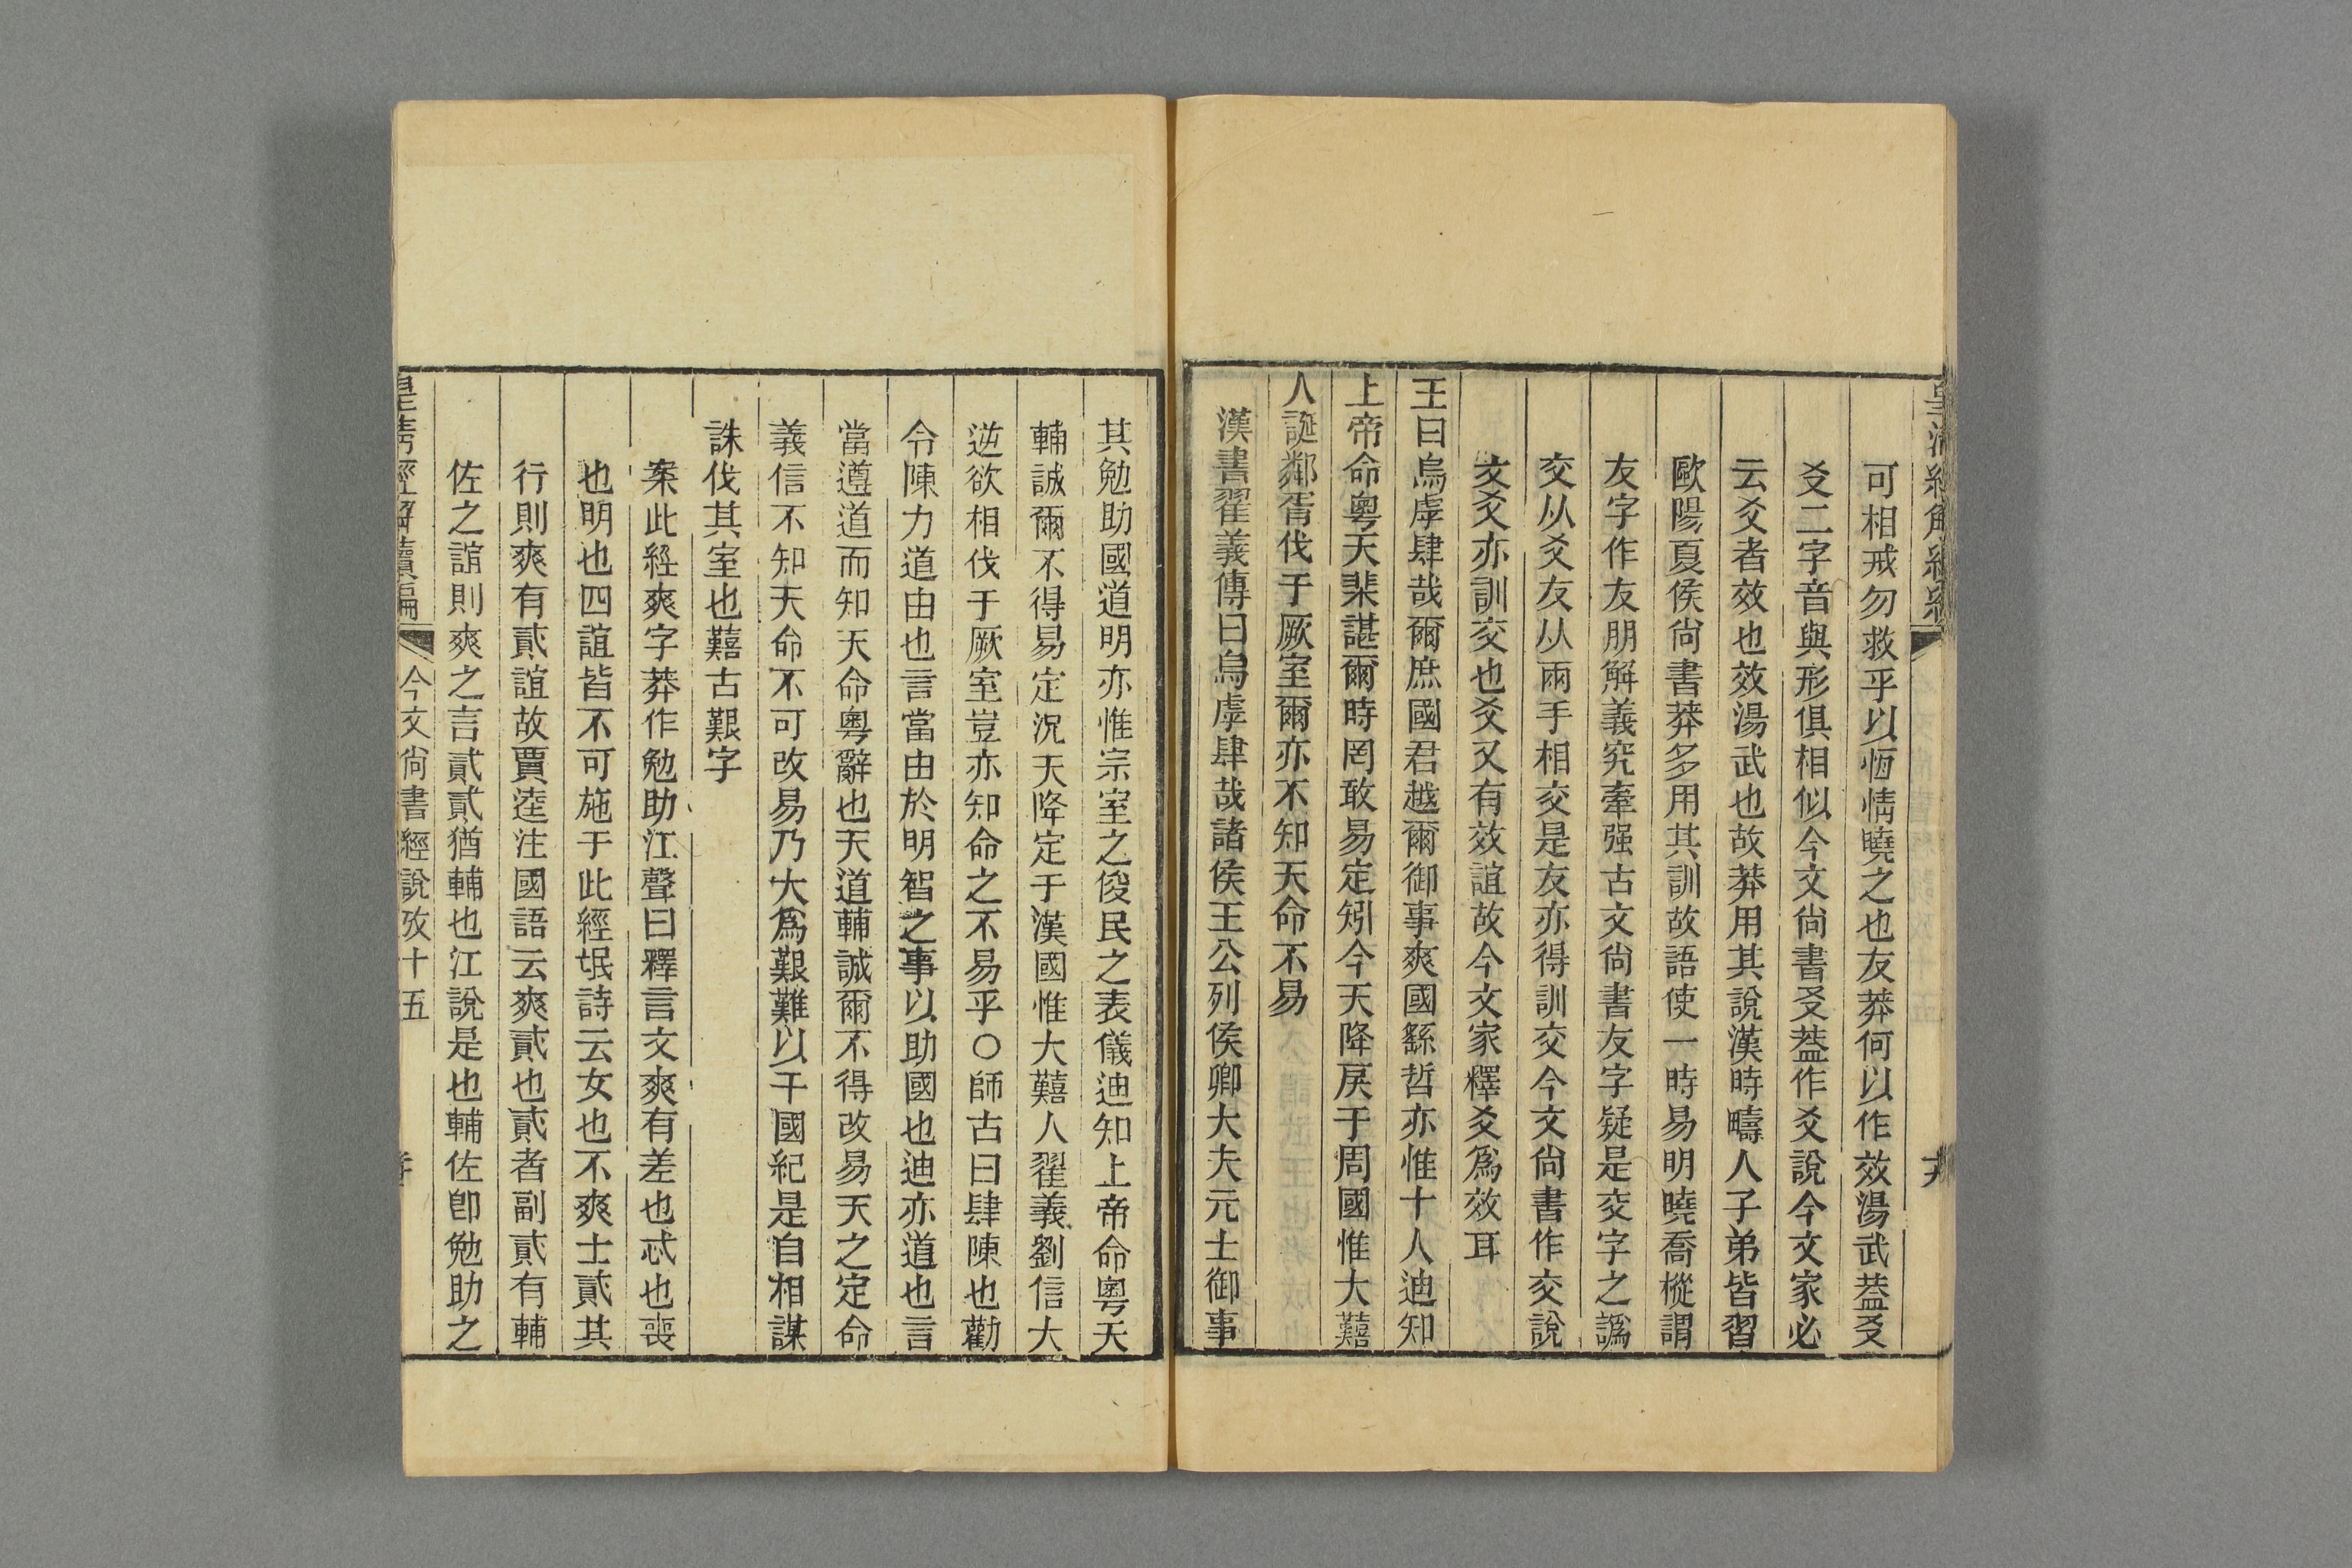 可相戒勿救乎以恆情曉之也友莽何以作效湯武葢爻
爻二字音與形俱相似今文尙書爻葢作爻說今文家必
云爻者效也效湯武也故莽用其說漢時疇人子弟皆習
歐陽夏侯尙書莽多用其訓故語使一時易明曉喬樅謂
友字作友朋解義究牽强古文尙書友字疑是交字之譌
交从爻友从兩手相交是友亦得訓交今文尙書作交說
文爻亦訓交也爻又有效誼故今文家釋爻爲效耳
王曰烏虖肆哉爾庶國君越爾御事爽國繇哲亦惟十人迪知
上帝命粵天棐諶爾時罔敢易定矧今天降戾于周國惟大囏
人誕鄰胥伐于厥室爾亦不知天命不易
漢書翟義傳曰烏虖肆哉諸侯王公列侯卿大夫元士御事
其勉助國道明亦惟宗室之俊民之表儀迪知上帝命粵天
輔誠爾不得易定況天降定于漢國惟大囏人翟義劉信大
逆欲相伐于厥室豈亦知命之不易乎○師古曰肆陳也勸
令陳力道由也言當由於明智之事以助國也迪亦道也言
當遵道而知天命粵辭也天道輔誠爾不得改易天之定命
義信不知天命不可改易乃大爲艱難以干國紀是自相謀
誅伐其室也囏古艱字
案此經爽字莽作勉助江聲曰釋言文爽有差也忒也喪
也明也四誼皆不可施于此經氓詩云女也不爽士貳其
行則爽有貳誼故賈逵注國語云爽貳也貳者副貳有輔
佐之誼則爽之言貳貳猶輔也江說是也輔佐卽勉助之
皇淸經解續編 今文尙書經說攷十五